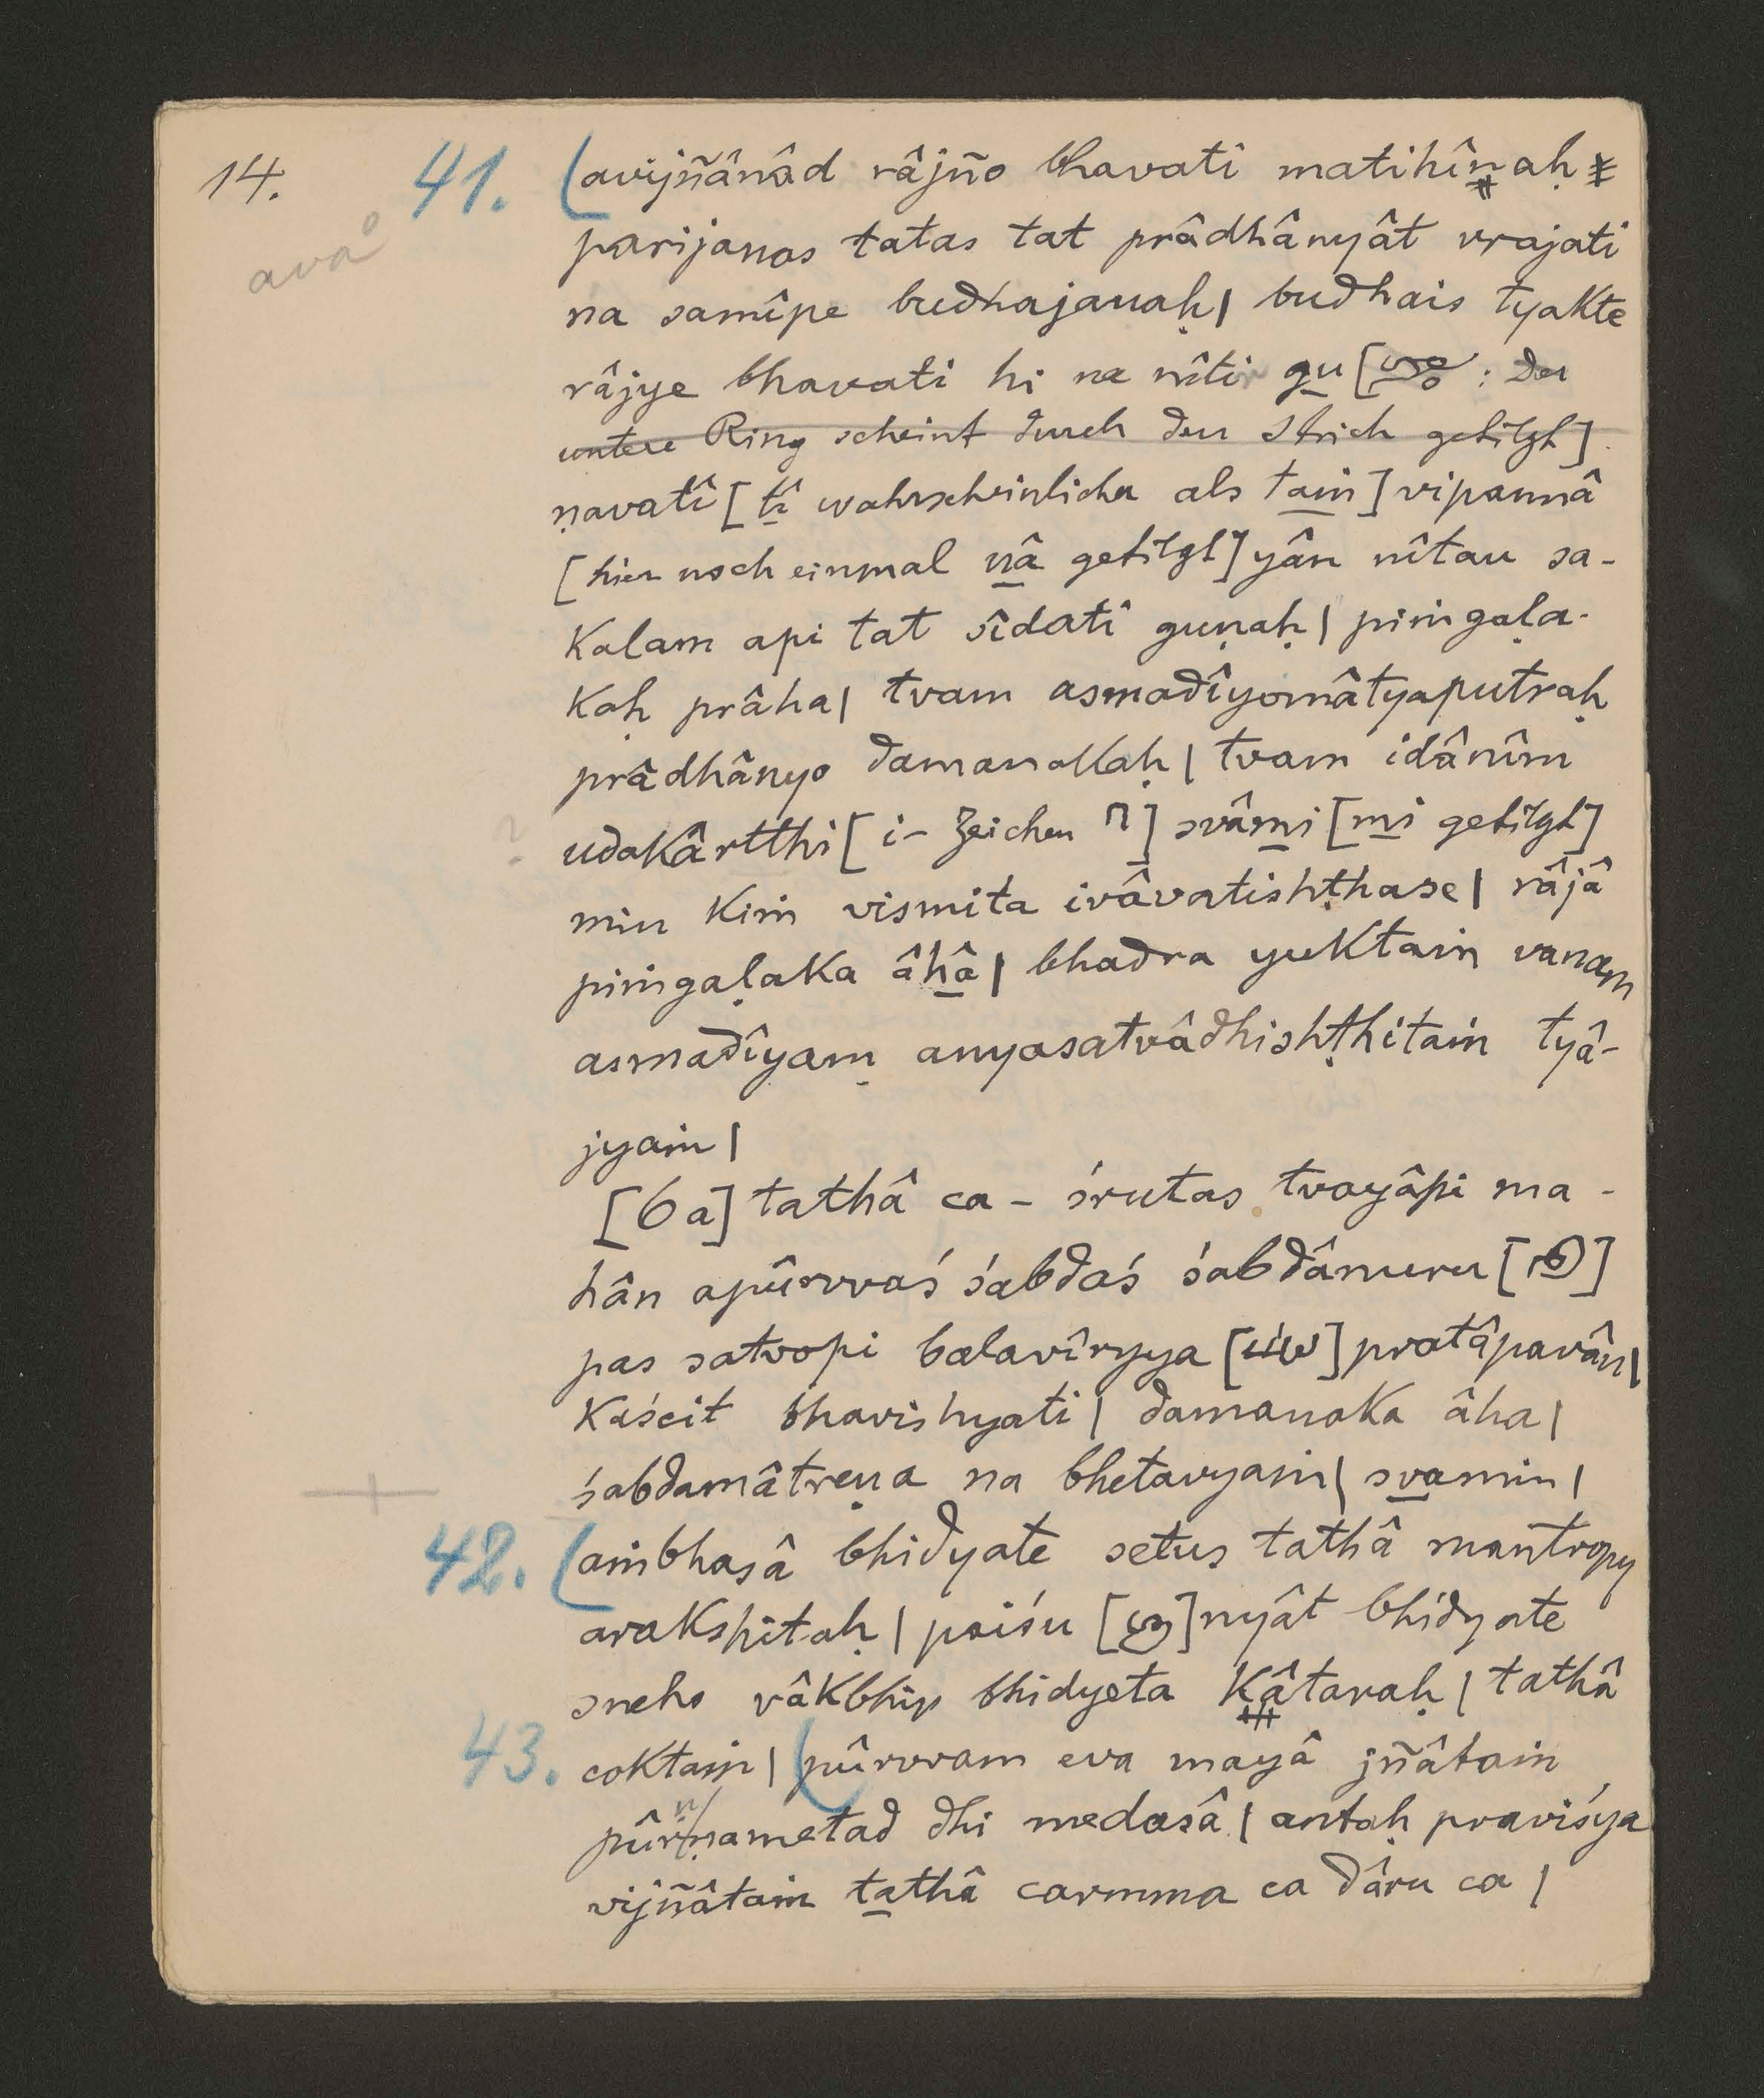 14. 41. (avijñânâd râjño bhavati matihînaḥ
ava°
parijanas tatas tat prâdhânyât vrajati
na samîpe budhajanaḥ| budhais tyakte
râjye bhavati hi na nîtir gu [ : der
untere Ring scheint durch den Strich getilgt]
ṇavatî [tî wahrscheinlicher als taṁ] vipannâ
[hier noch einmal nâ getilgt] yâṅ nîtau sa-
kalam api tat sîdati guṇaḥ| piṁgaḷa-
kaḥ prâha| tvam asmadîyomâtyaputraḥ
prâdhânyo damanakaḥ| tvam idânîm
? udakârtthi [i-Zeichen ] svâmi [mi getilgt]
min kiṁ vismita ivâvatishṭhase| râjâ
piṁgaḷaka âhâ| bhadra yuktaṁ vanam
asmadîyam anyasatvâdhishṭhitaṁ tyâ-
jyaṁ|
[6a] tathâ ca - śrutas tvayâpi ma-
hân apûrvvaś śabdaś śabdânuru [ ]
pas satvopi balavîryya [ ] pratâpavân|
kaścit bhavishyati| damanaka âha|
śabdamâtreṇa na bhetavyaṁ| svamin|
42. (aṁbhasâ bhidyate setus tathâ mantropy
arakshitaḥ| paiśu [ ] nyât bhidyate
sneho vâkbhip bhidyeta kâtaraḥ| tathâ
43. coktaṁ| (pûrvvam eva mayâ jñâtaṁ
pûrṇnametad dhi medasâ| antaḥ praviśya
vijñâtaṁ tathâ carmma ca dâru ca|